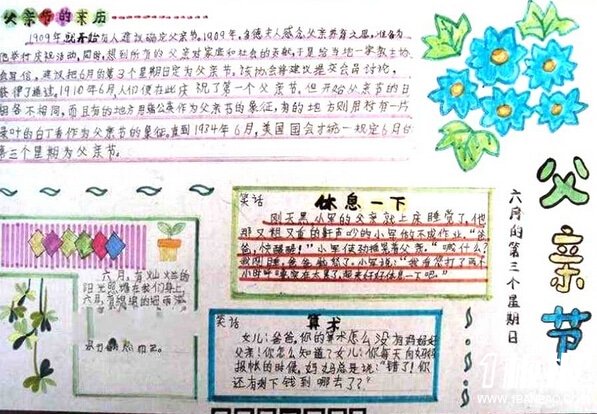 父亲节的来历
1909年就开始有人建议确定父亲节。1909年,多德夫人感念父亲养育之恩,准备为
他举行庆祝活动,同时,想到所有的父亲对家庭和社会的贡献,于是给当地一家教士协
会写信,建议把6月的第3个星期日定为父亲节。该协会将建议提交会员讨论,
获得了通过。1910年6月人们便在此庆祝了第一个父亲节。但开始父亲节的日
期各不相同,而且有的地方用蒲公英作为父亲节的象征,有的地方则用衬有一片
绿叶的白丁香作为父亲节的象征。直到1934年6月,美国国会才统一规定6月的
第三个星期为父亲节。
父亲节
六月的第三个星期日
笑话
休息一下
刚天黑小军的父亲就上床睡觉了,他
那又粗又重的鼾声吵的小军做不成作业。"爸
爸,快醒醒!"小军使劲摇晃着父亲。"喊什么?
我刚睡
小时呼噜实在太累了,起来好好休息一下吧。"
六月,有灿烂的
阳光照耀在我们身上,
六月,有缤缤的细雨滋
笑话
算术
女儿:爸爸,你的算术怎么没有妈妈好
父亲:你怎么知道?女儿:你每天向妈妈
报帐的时候,妈妈总是说:"错了!你
还有剩下钱到哪去了?"
www.1banbao.com